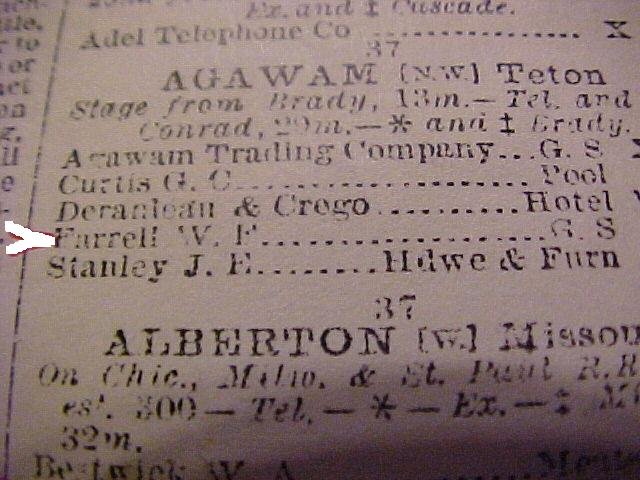 Ex. and ‡ Cascade.
Adel Telephone Co ............... X
37
AGAWAM (N.W.) Teton
Stage from Brady, 13m.— Tel. and
Conrad, 29m.—* and ‡ Brady.
Agawam Trading Company...G. S
Curtis G. C..................... Pool
Deranleau & Crego...........Hotel
Farrell W. F.....................G. S
Stanley J. E........Hdwe & Furn
37
ALBERTON (W.) Missou
On Chic., Milw. & St. Paul R.R
est. 300 — Tel. — * — Ex. — ‡ Mi
32m.
Bestwick W. A